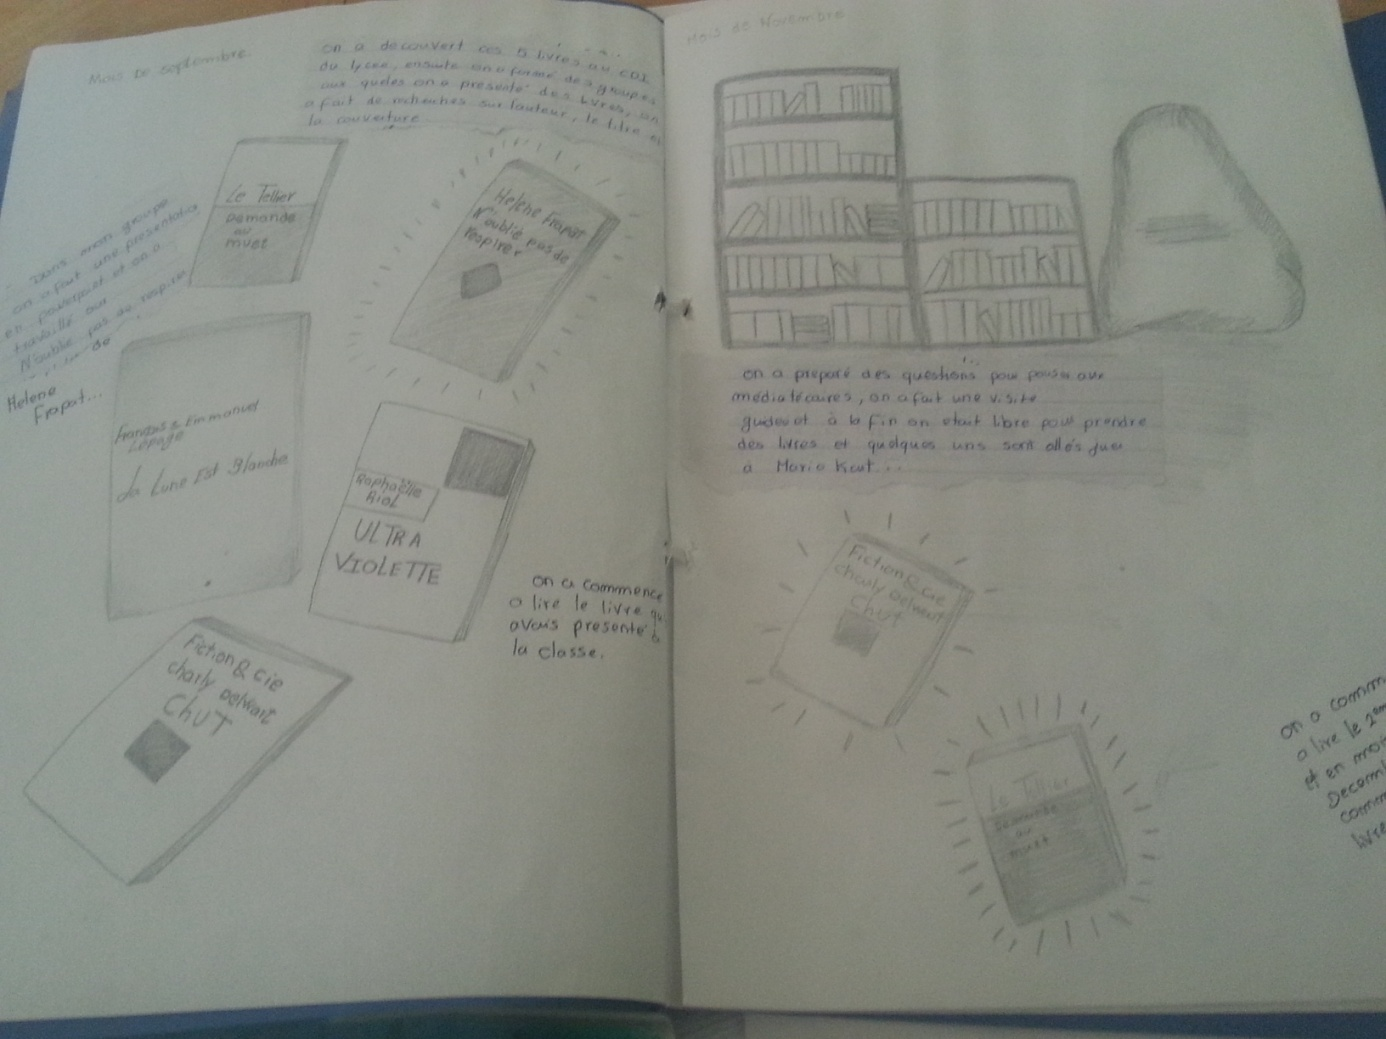 Mois De septembre
on a decouvert ces 5 livres au CDI
du lycee, ensuite on a formé des groupes
aux queles on a presenté des livres, on
a fait de recherches sur l'auteur, le titre et
la couverture
Le Tellier
Demande
au
muet
Helene Frapat
N'oublie pas de
respirer
Dans mon groupe
on a fait une presentation
en powerpoint et on a
travaillé sur
N'oublie pas de respirer
de
Helene
Frapat...
François & Emmanuel
Lepage
La Lune Est Blanche
Raphaëlle
Riol
ULTRA
VIOLETTE
on a commence
a lire le livre qu
avais presenté a
la classe.
Fiction & Cie
charly delwart
ChUT
Mois de Novembre
on a preparé des questions pour pouser aux
mediatecaires, on a fait une visite
guide et à la fin on etait libre pour prendre
des livres et quelques uns sont allés juer
à Mario Kart...
Fiction & Cie
charly delwart
ChuT
Le Tellier
Demande
au
muet
on a comm
a lire le 2em
et en moi
Decemb
comm
livre